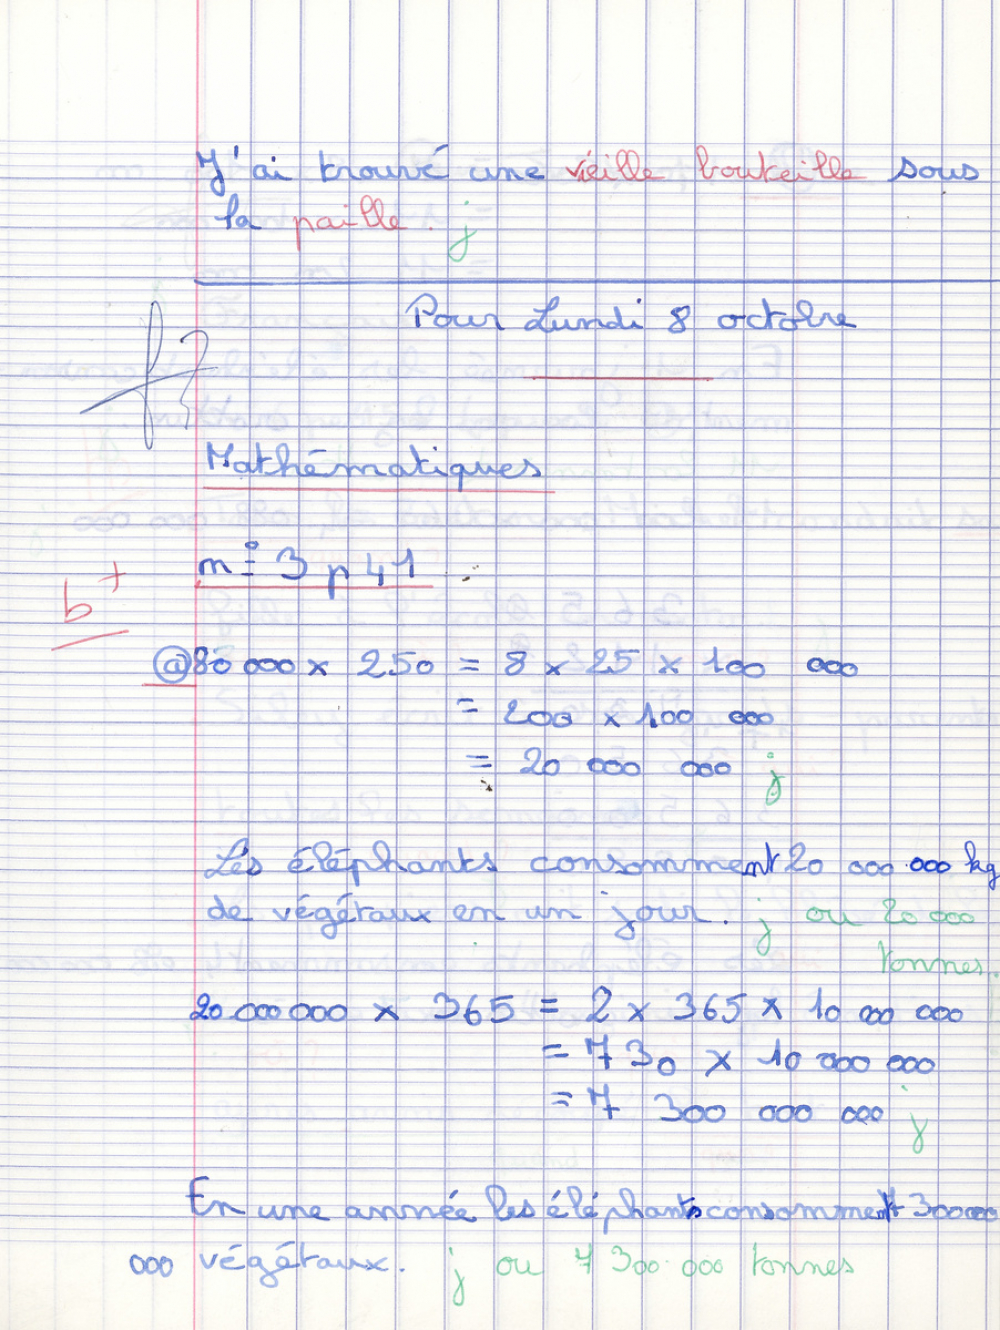 J'ai trouvé une vieille bouteille sous
la paille. j
Pour Lundi 8 octobre
Mathématiques
b+
n° 3 p 41
a 80 000 x 250 = 8 x 25 x 100 000
= 200 x 100 000
= 20 000 000 j
Les éléphants consomment 20 000 000 kg
de végétaux en un jour. j ou 20 000
tonnes.
20 000 000 x 365 = 2 x 365 x 10 000 000
= 730 x 10 000 000
= 7 300 000 000 j
En une année les éléphants consomment 7 300 000
000 végétaux. j ou 7 300 000 tonnes